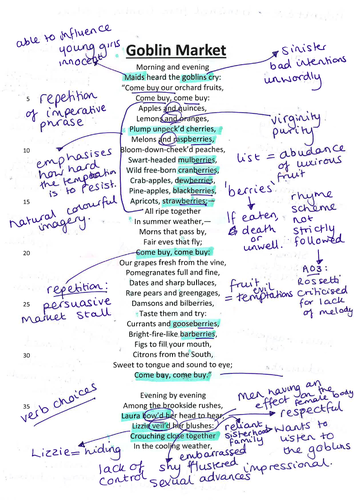 able to influence
young girls
innocent
Goblin Market
Sinister
bad intentions
unwordly
Morning and evening
Maids heard the goblins cry:
"Come buy our orchard fruits,
Come buy, come buy:
5
Apples and quinces,
Lemons and oranges,
Plump unpeck'd cherries,
Melons and raspberries,
10
Bloom-down-cheek'd peaches,
Swart-headed mulberries,
Wild free-born cranberries,
Crab-apples, dewberries,
Pine-apples, blackberries,
Apricots, strawberries;—
15
All ripe together
In summer weather,—
Morns that pass by,
Fair eves that fly;
Come buy, come buy:
20
Our grapes fresh from the vine,
Pomegranates full and fine,
Dates and sharp bullaces,
Rare pears and greengages,
Damsons and bilberries,
25
Taste them and try:
Currants and gooseberries,
Bright-fire-like barberries,
Figs to fill your mouth,
Citrons from the South,
30
Sweet to tongue and sound to eye;
Come buy, come buy."
Evening by evening
Among the brookside rushes,
Laura bow'd her head to hear,
35
Lizzie veil'd her blushes:
Crouching close together
In the cooling weather,
repetition
of imperative
phrase
emphasises
how hard
the temptation
is to resist.
Natural colourful
imagery.
virginity
purity
list = abudance
of luxirous
fruit
'berries'
If eaten,
death
or
unwell.
rhyme
scheme
not
strictly
followed
AO3:
Rossetti
criticised
for lack
of melody
repetition:
persuasive
Market Stall
fruit = evil
temptations
verb choices
Men having an
effect on the female body
respectful
reliant
sisterhood
family
Wants to
listen to
the goblins
Lizzie = hiding
lack of
control
shy flustered
embarrassed
sexual advances
impressional.